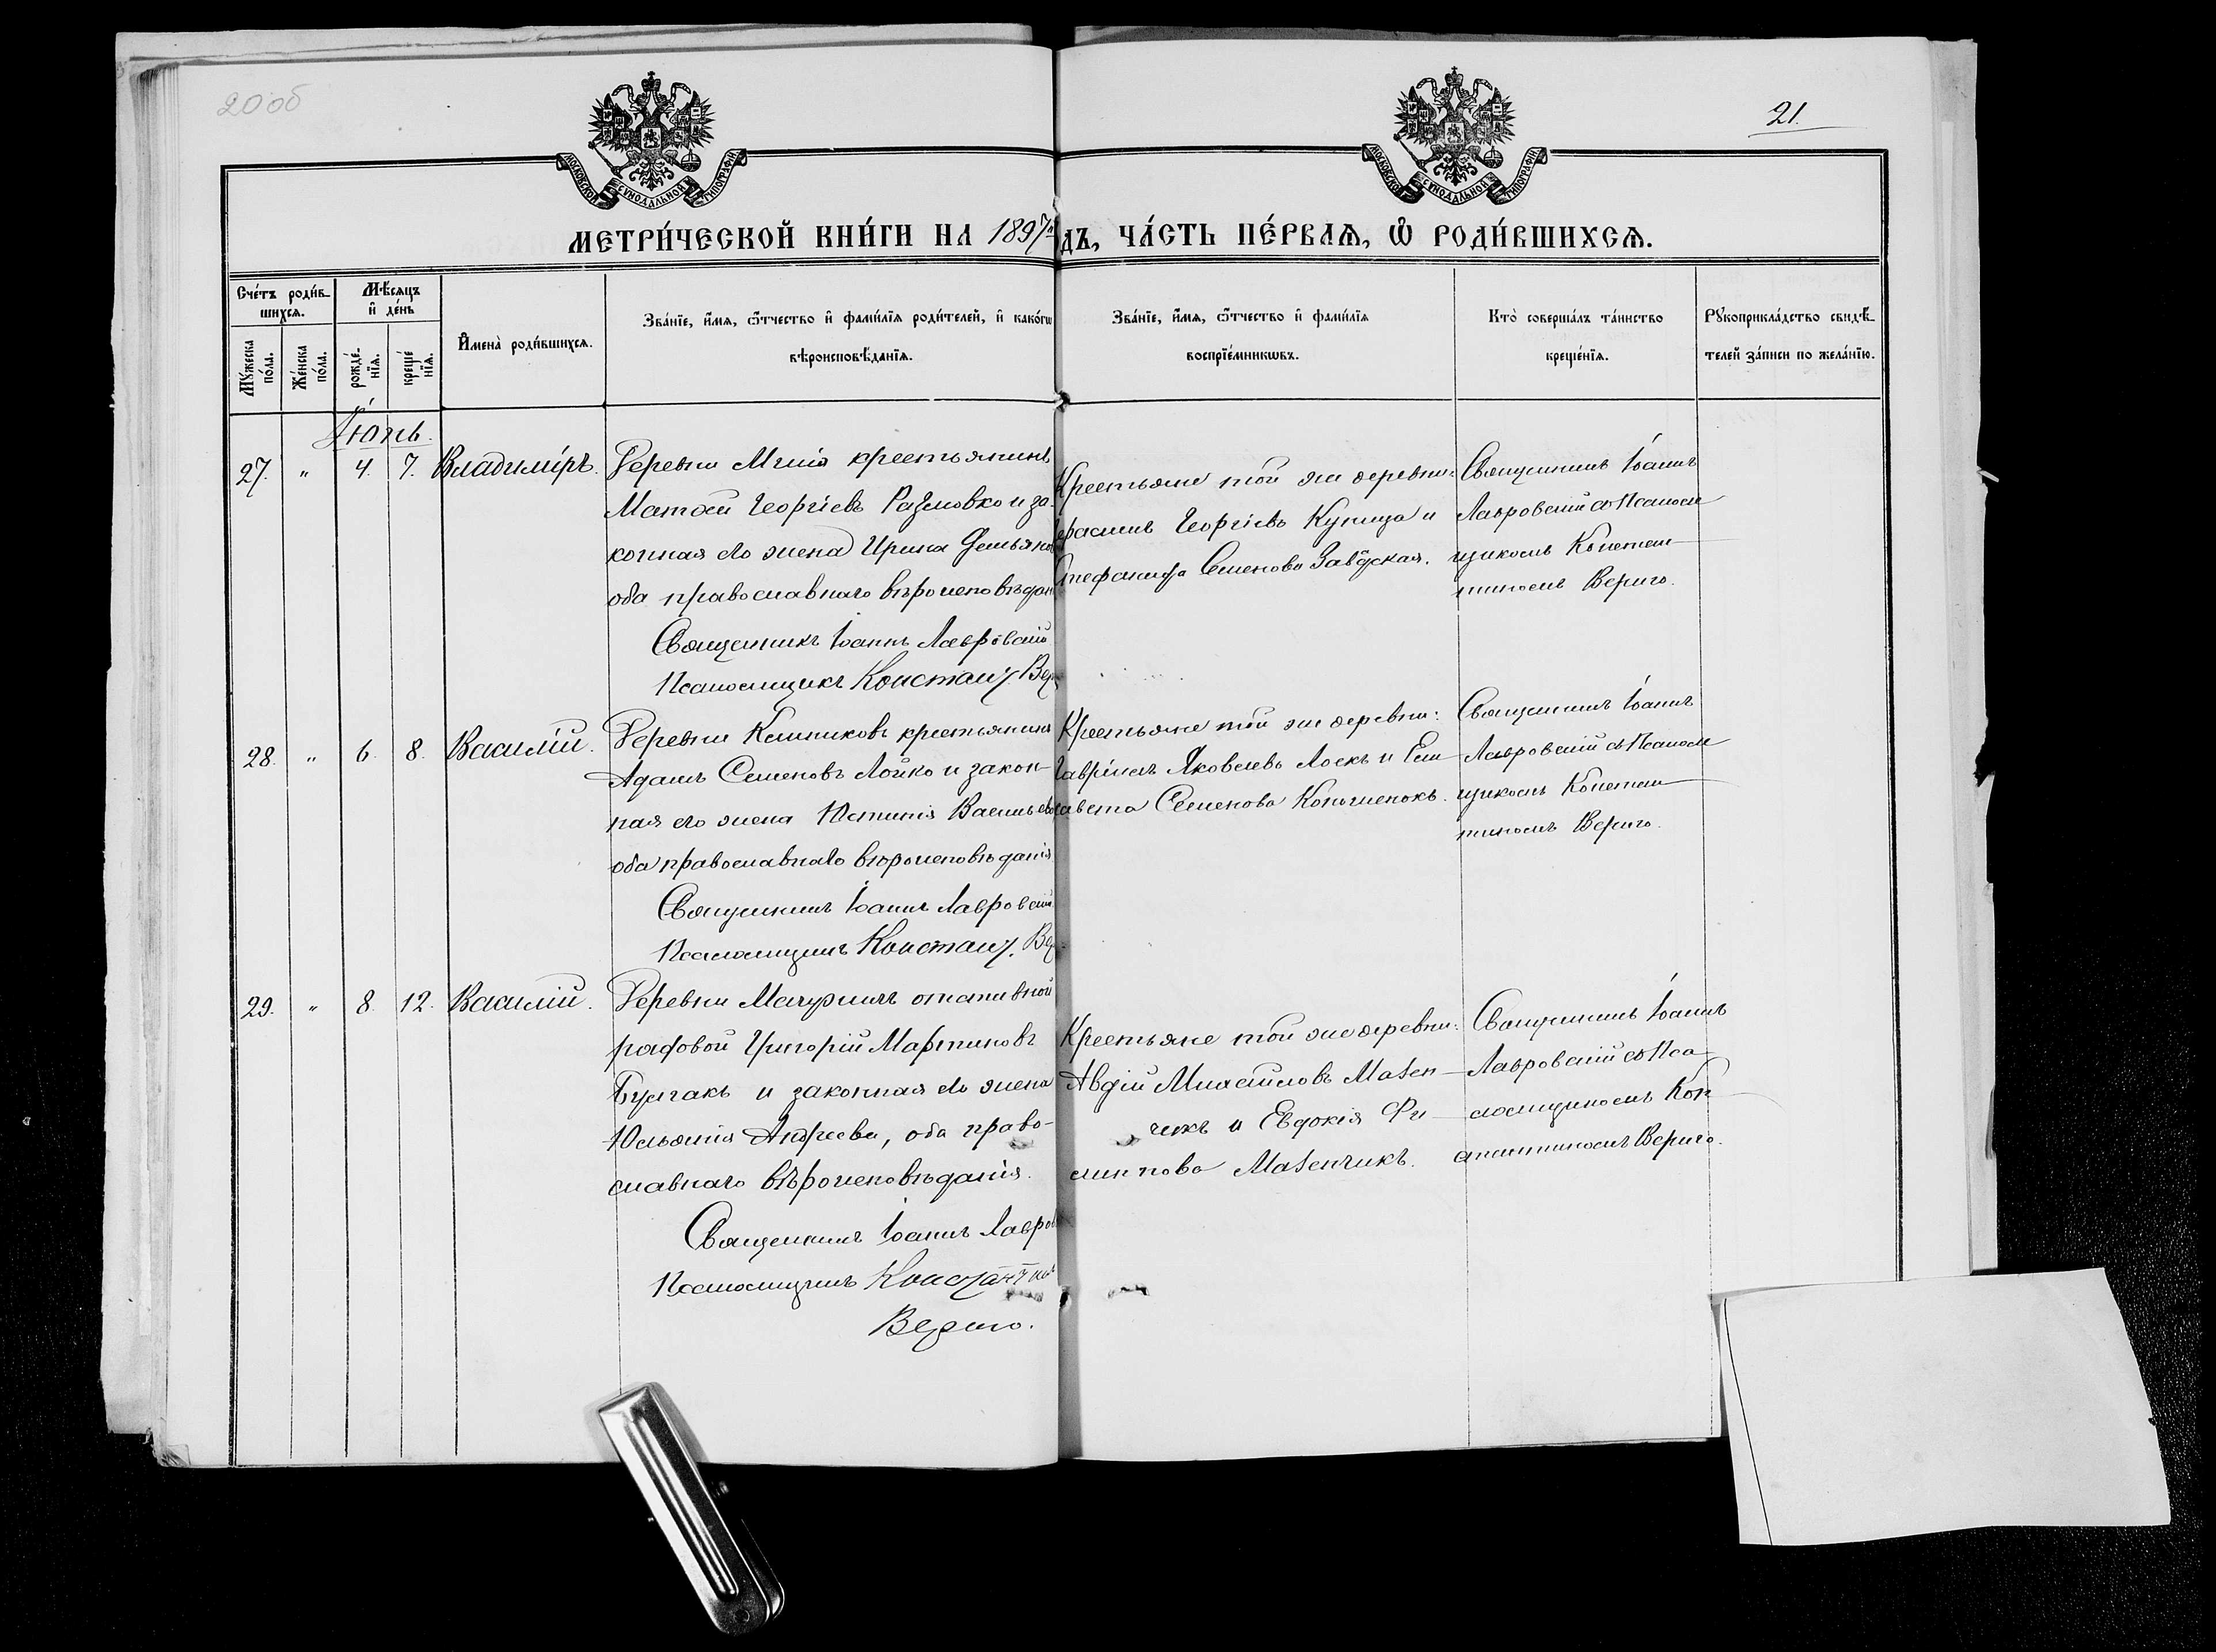 20об
21.
МОСКОВСКОЙ СѴНОДАЛЬНОЙ ТИПОГРАФІИ
МОСКОВСКОЙ СѴНОДАЛЬНОЙ ТИПОГРАФІИ
МЕТРИ́ЧЕСКОЙ КНИ́ГИ НА 1897 ДЪ, ЧА́СТЬ ПЕ́РВАѦ, Ѽ РОДИ́ВШИХСѦ.
Сче́тъ роди́в-
шихсѧ.
Мꙋ́жеска по́ла.
Же́нска по́ла.
Мѣ́сѧцъ и҆ де́нь
рожде́-нїѧ.
креще́нїѧ.
И҆мена̀ роди́вшихсѧ.
Зва́нїе, и҆́мѧ, ѻ҆́тчество и҆ фами́лїѧ роди́телей, и҆ како́гѡ
вѣроисповѣ́данїѧ.
Зва́нїе, и҆́мѧ, ѻ҆́тчество и҆ фами́лїѧ
воспрїе́мникѡвъ.
Кто̀ соверша́лъ та́инство
креще́нїѧ.
Рꙋкоприкла́дство свидѣ́-
телей за́писи по жела́нїю.
Іюнь.
27. " 4. 7. Владиміръ.
Деревни крестьянинъ
Матѳей Георгіевъ Размовко и за-
конная его жена Ирина Демьяно
оба православнаго вѣроисповѣдан
Священникъ Іоаннъ Лавровскій
Псаломщикъ Констант. Вер
Крестьяне той же деревни:
Георгіевъ Купица и
Стефанида Семенова Завдская.
Священникъ Іоаннъ
Лавровскій съ Псалом
щикомъ Констан
тиномъ Вериго.
28. " 6. 8. Василій.
Деревни крестьянинъ
Адамъ Семеновъ Лойко и закон-
ная его жена Юстинія Васильев
оба православнаго вѣроисповѣданія
Священникъ Іоаннъ Лавровскій
Псаломщикъ Констант. Вер
Крестьяне той же деревни:
Гавріилъ Яковлевъ и Ели-
савета Семенова
Священникъ Іоаннъ
Лавровскій съ Псалом
щикомъ Констан
тиномъ Вериго.
29. " 8. 12. Василій.
Деревни отставной
рядовой Григорій Мартиновъ
Булгакъ и законная его жена
Юліанія Андреева, оба право-
славнаго вѣроисповѣданія.
Священникъ Іоаннъ Лавров
Псаломщикъ Константинъ
Вериго.
Крестьяне той же деревни:
Авдій Михайловъ Мазен-
чикъ и Евдокія Фи-
липпова Мазенчикъ.
Священникъ Іоаннъ
Лавровскій съ Пса
ломщикомъ Кон
стантиномъ Вериго.